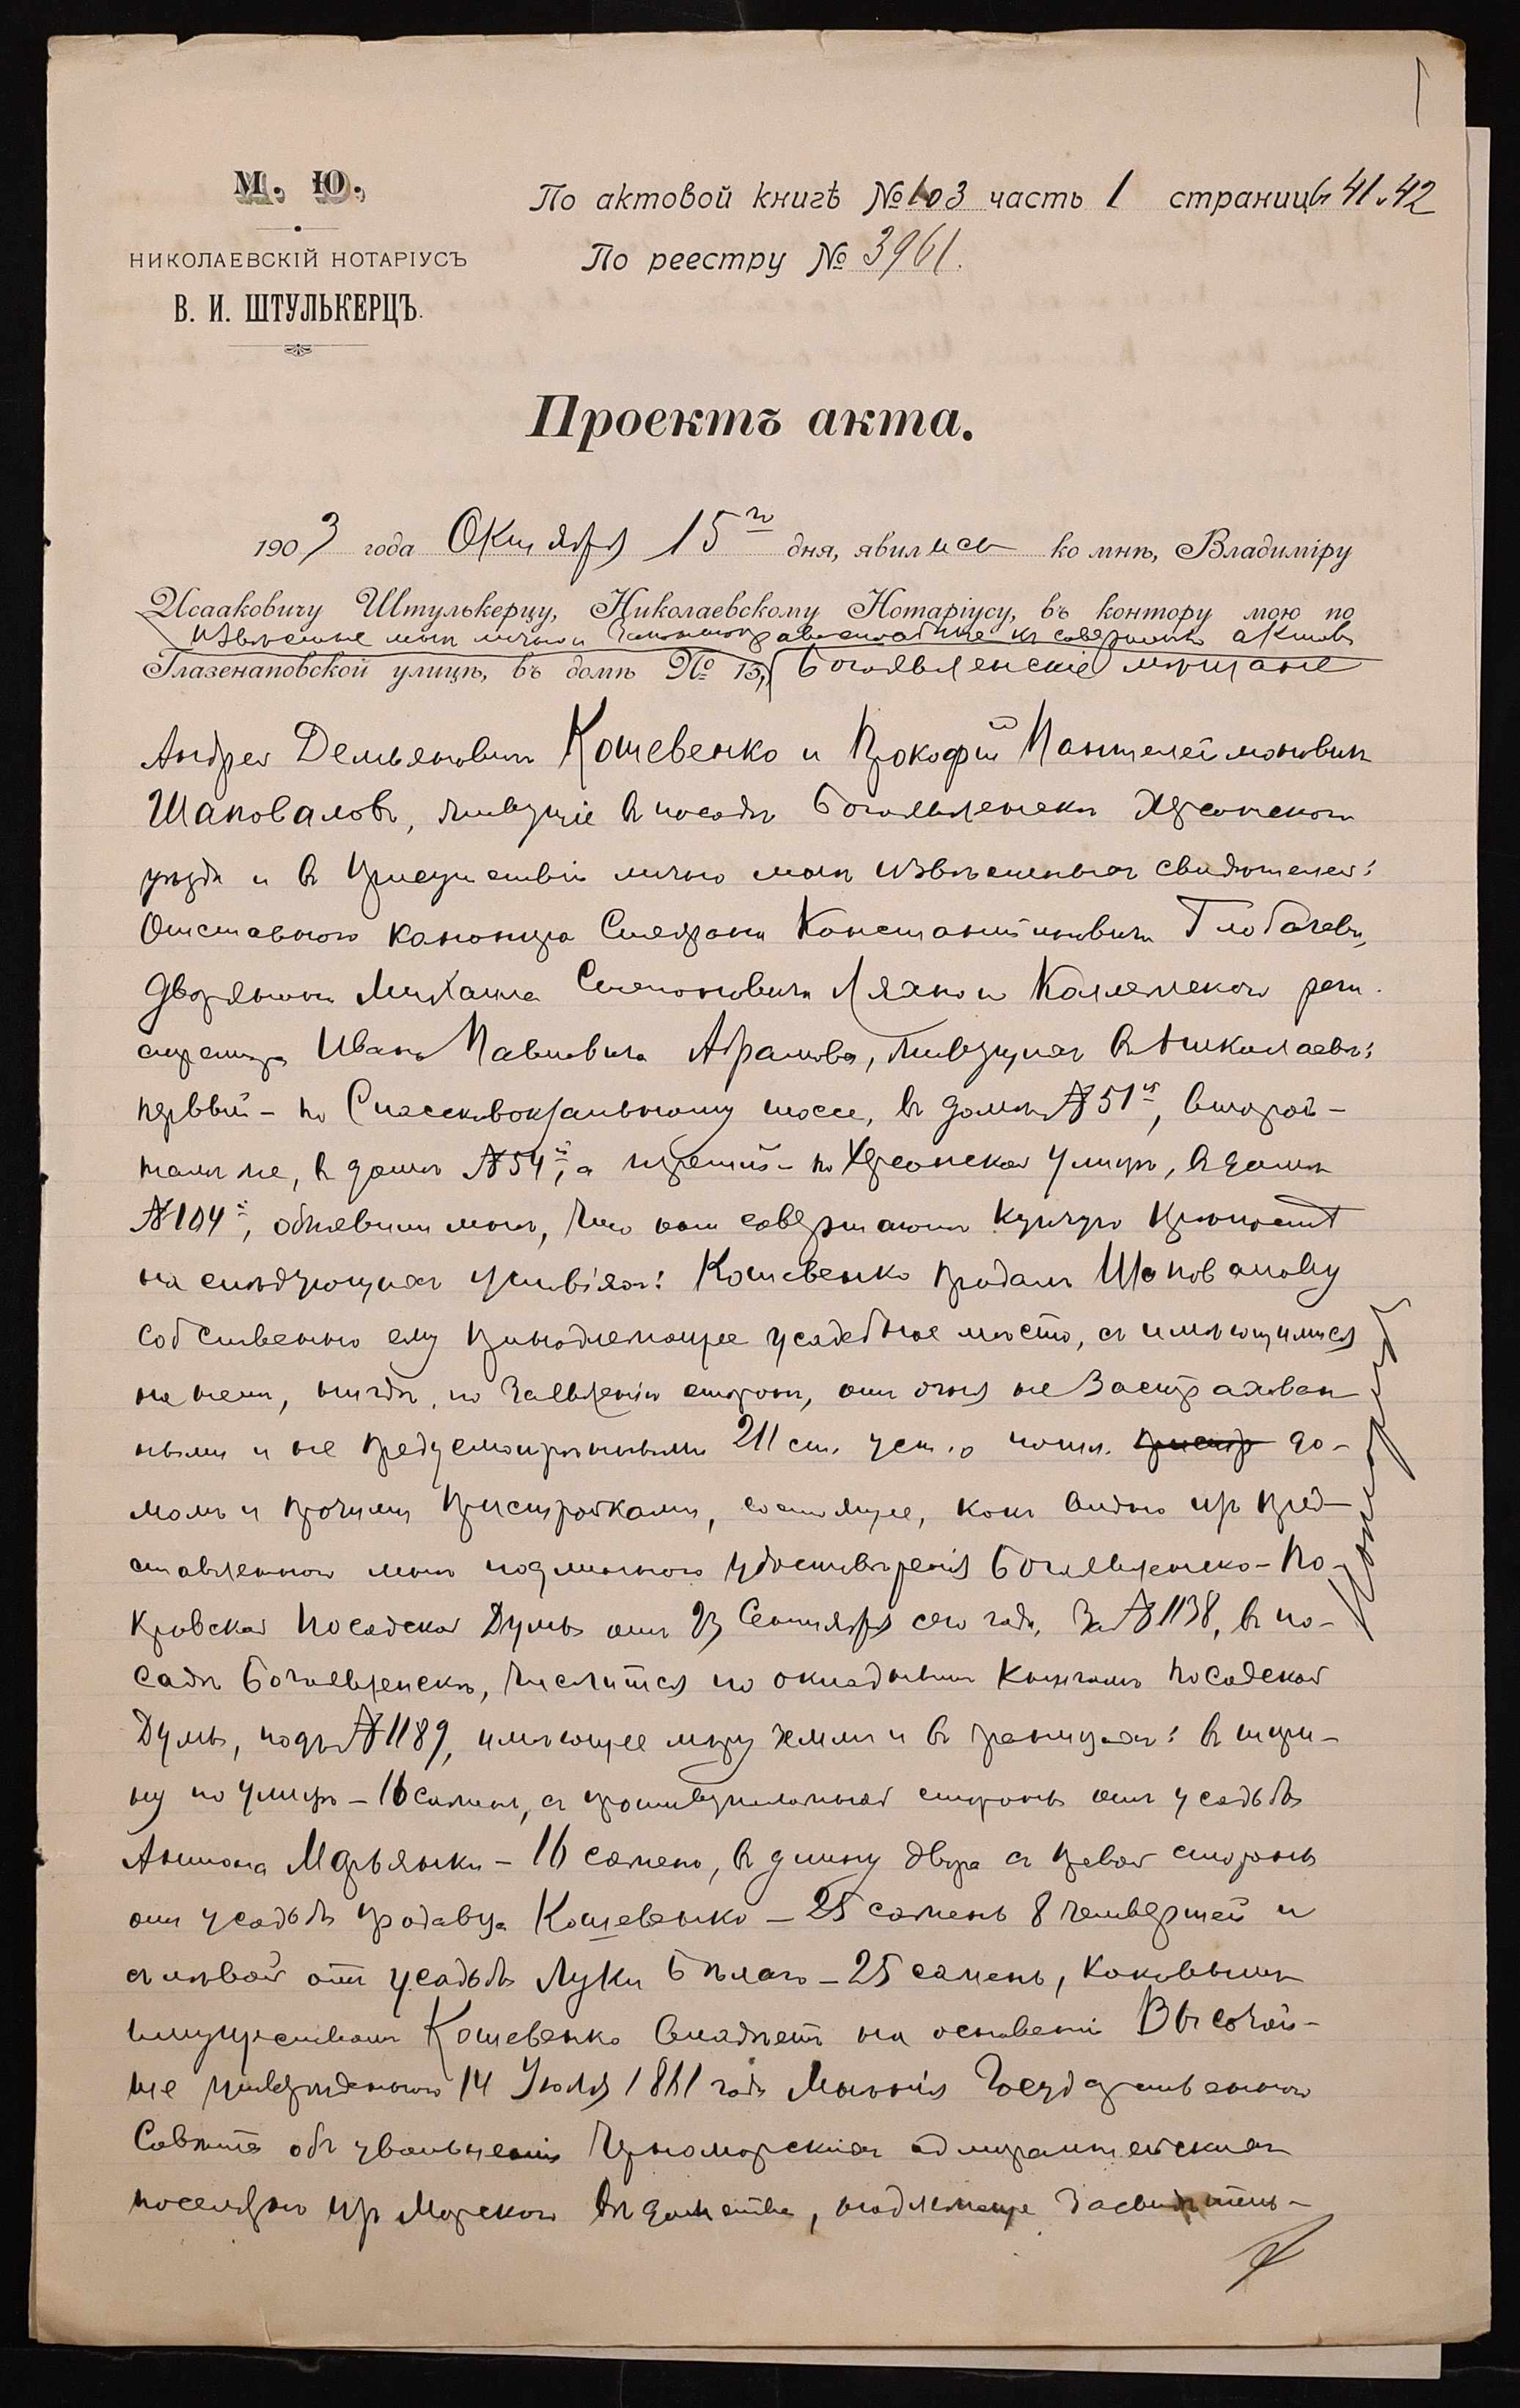 М. Ю.
НИКОЛАЕВСКІЙ НОТАРІУСЪ
В. И. ШТУЛЬКЕРЦЪ.
По актовой книгѣ № 103 часть 1 страницы 41.42
По реестру № 3961.
Проектъ акта.
1903 года Октября 15го дня, явились ко мнѣ, Владиміру
Исааковичу Штулькерцу, Николаевскому Нотаріусу, въ контору мою по
извѣстные мнѣ лично и къ совершенію актовъ
Глазенаповской улицѣ, въ домѣ № 13, Богоявленскіе мѣщане
Андрей Демьяновичъ Кошевенко и Прокофій Пантелеймоновичъ
Шаповаловъ, живущіе въ посадѣ Богоявленскѣ Херсонскаго
уѣзда и въ присутствіи лично мнѣ извѣстныхъ свидѣтелей:
Отставного канонира Степана Константиновича Глобачева,
дворянина Михаила Степановича Ляхно и Коллежскаго реги-
стратора Ивана Павловича Абрамова, живущихъ въ Николаевѣ:
первый - по Спасскому шоссе, въ домѣ № 51й, второй -
тамъ же, въ домѣ № 54й, а третій - по Херсонской улицѣ, въ домѣ
№ 104й, объявили мнѣ, что они совершаютъ купчую крѣпость
на слѣдующихъ условіяхъ: Кошевенко продалъ Шаповалову
собственно ему принадлежащее усадебное мѣсто, съ имѣющимися
на немъ, нигдѣ, по заявленію сторонъ, отъ огня не застрахован
ными и не предусмотрѣнными 211 ст. уст. о пошл. до-
момъ и прочими пристройками, состоящее, какъ видно изъ пред-
ставленнаго мнѣ подлиннаго удостовѣренія Богоявленско-По-
кровской Посадской Думы отъ 23 Сентября сего года, за № 1138, въ по-
садѣ Богоявленскѣ, числится по окладнымъ книгамъ Посадской
Думы, подъ № 1189, имѣющее мѣру земли и въ границахъ: въ шири-
ну по улицѣ - 16 сажень, съ противуположной стороны отъ усадьбы
Антона - 16 сажень, въ длину двора съ правой стороны
отъ усадьбы продавца Кошевенко - 25 сажень 8 четвертей и
съ лѣвой отъ усадьбы Луки Бѣлаго - 25 сажень, каковымъ
имуществомъ Кошевенко владѣетъ на основаніи Высочай-
ше утвержденнаго 14 Іюля 1861 года Мнѣнія Государственнаго
Совѣта объ увольненіи Черноморскихъ адмиралтейскихъ
поселянъ изъ Морского вѣдомства, надлежаще засвидѣтель-